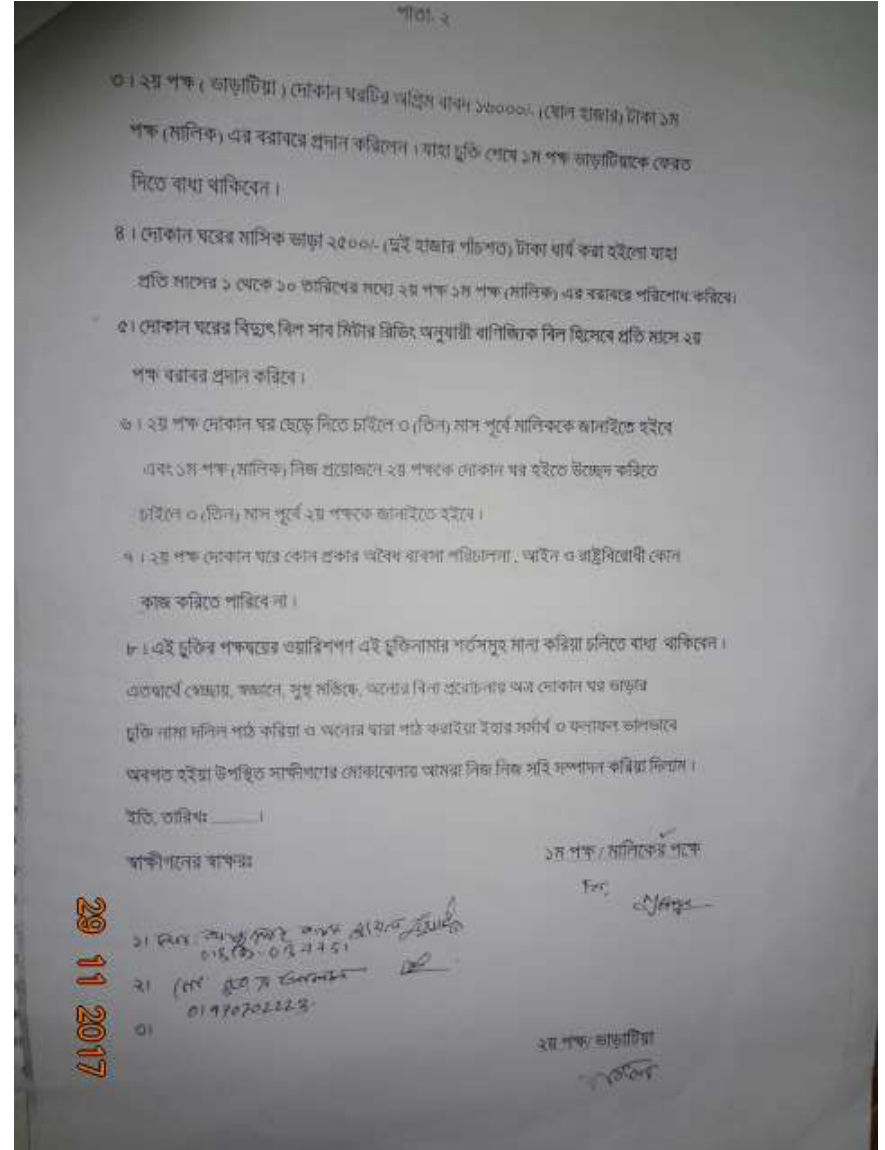 পাতা- ২
৩। ২য় পক্ষ ( ভাড়াটিয়া ) দোকান ঘরটির অগ্রিম বাবদ ১৬০০০/- (ষোল হাজার) টাকা ১ম
পক্ষ (মালিক) এর বরাবরে প্রদান করিলেন । যাহা চুক্তি শেষে ১ম পক্ষ ভাড়াটিয়াকে ফেরত
দিতে বাধ্য থাকিবেন ।
৪ । দোকান ঘরের মাসিক ভাড়া ২৫০০/- (দুই হাজার পাঁচশত) টাকা ধার্য করা হইলো যাহা
প্রতি মাসের ১ থেকে ১০ তারিখের মধ্যে ২য় পক্ষ ১ম পক্ষ (মালিক) এর বরাবরে পরিশোধ করিবে।
৫। দোকান ঘরের বিদ্যুৎ বিল সাব মিটার রিডিং অনুযায়ী বাণিজ্যিক বিল হিসেবে প্রতি মাসে ২য়
পক্ষ বরাবর প্রদান করিবে ।
৬ । ২য় পক্ষ দোকান ঘর ছেড়ে দিতে চাইলে ৩ (তিন) মাস পূর্বে মালিককে জানাইতে হইবে
এবং ১ম পক্ষ (মালিক) নিজ প্রয়োজনে ২য় পক্ষকে দোকান ঘর হইতে উচ্ছেদ করিতে
চাইলে ৩ (তিন) মাস পূর্বে ২য় পক্ষকে জানাইতে হইবে ।
৭ । ২য় পক্ষ দোকান ঘরে কোন প্রকার অবৈধ ব্যবসা পরিচালনা , আইন ও রাষ্ট্রবিরোধী কোন
কাজ করিতে পারিবে না ।
৮ । এই চুক্তির পক্ষদ্বয়ের ওয়ারিশগণ এই চুক্তিনামার শর্তসমূহ মান্য করিয়া চলিতে বাধ্য থাকিবেন ।
এতদ্বার্থে স্বেচ্ছায়, স্বজ্ঞানে, সুস্থ মস্তিষ্কে, অন্যের বিনা প্ররোচনায় অত্র দোকান ঘর ভাড়ার
চুক্তি নামা দলিল পাঠ করিয়া ও অন্যের দ্বারা পাঠ করাইয়া ইহার মর্মার্থ ও ফলাফল ভালভাবে
অবগত হইয়া উপস্থিত সাক্ষীগণের মোকাবেলায় আমরা নিজ নিজ সহি সম্পাদন করিয়া দিলাম ।
ইতি, তারিখঃ ______।
স্বাক্ষীগনের স্বাক্ষরঃ
১ম পক্ষ / মালিকের পক্ষে
For,
১।
২।
01970702223
৩।
২য় পক্ষ/ ভাড়াটিয়া
29 11 2017